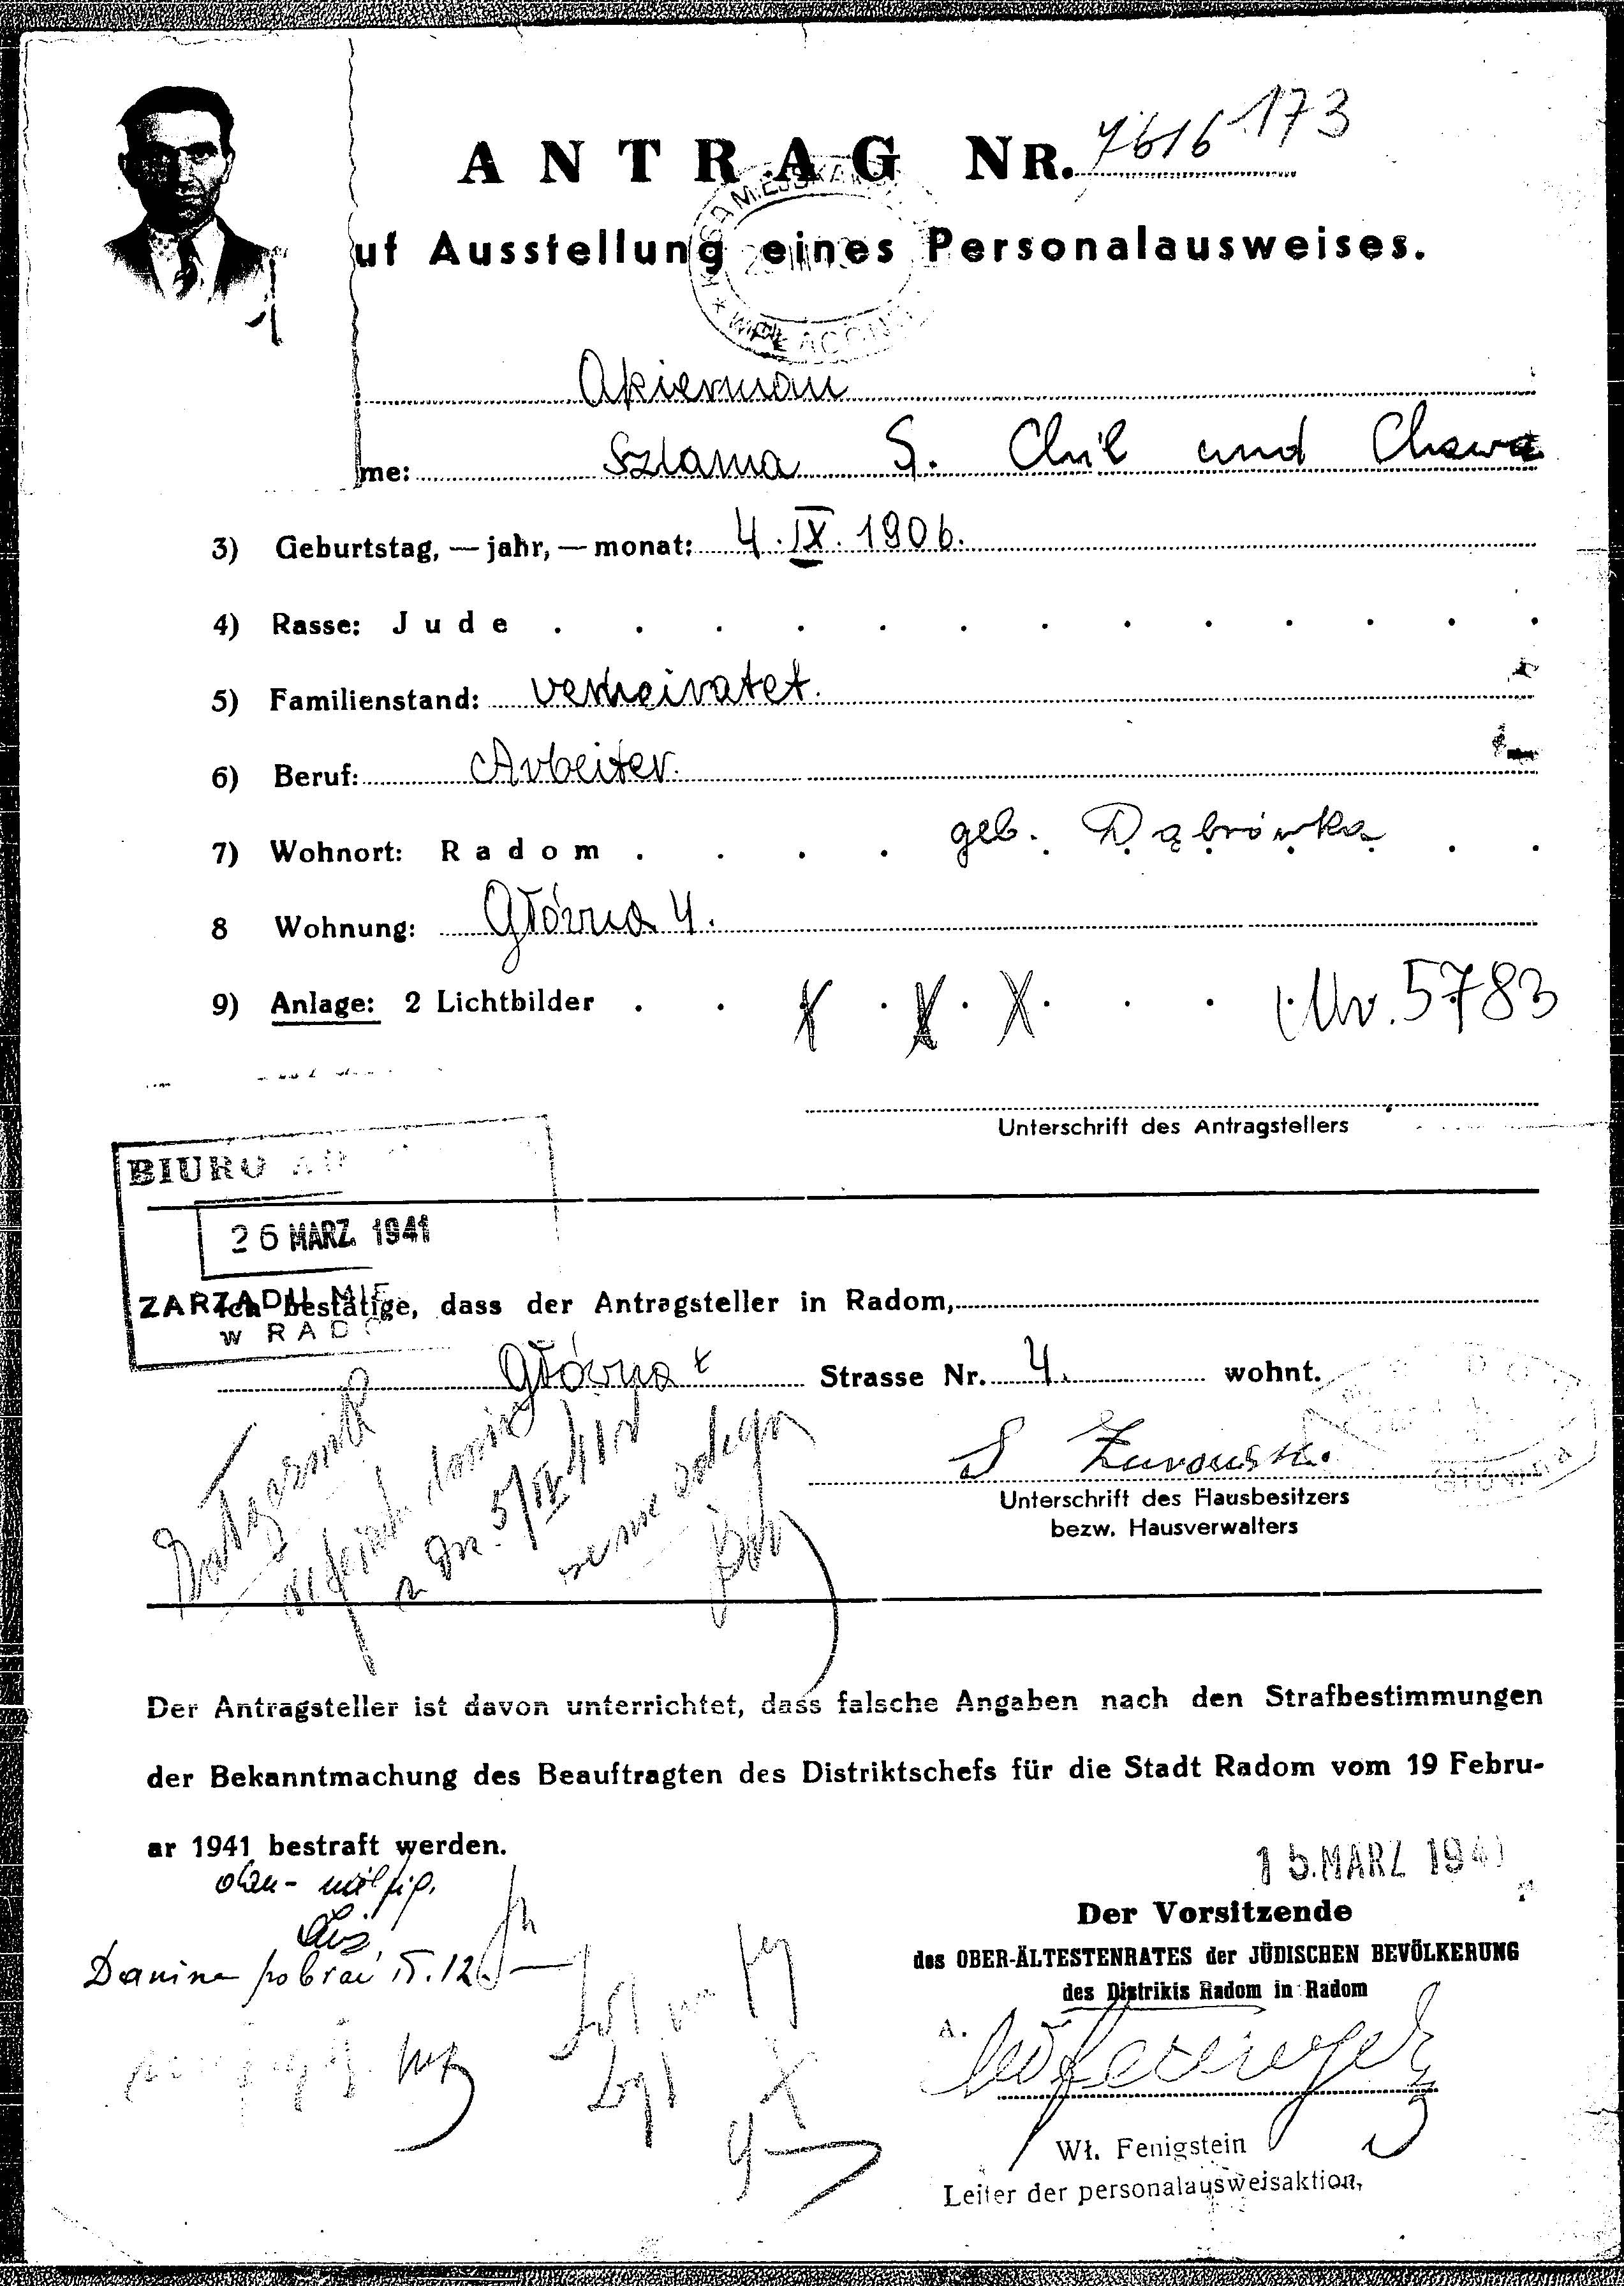 ANTRAG NR. 7616 173
uf Ausstellung eines Personalausweises.
Akierman
me: Szlama S. Chil und Chawa
3) Geburtstag, — jahr, — monat: 4. IX. 1906.
4) Rasse: Jude
5) Familienstand: verheiratet.
6) Beruf: Arbeiter.
geb. Dąbrówka
7) Wohnort: Radom
8 Wohnung: Główna 4.
9) Anlage: 2 Lichtbilder X X X Nr. 5783
Unterschrift des Antragstellers
BIURO
26 MARZ. 1941
ZARZADU MIE
w RADO
Ich bestätige, dass der Antragsteller in Radom,
Główna Strasse Nr. 4. wohnt.
Unterschrift des Hausbesitzers
bezw. Hausverwalters
Der Antragsteller ist davon unterrichtet, dass falsche Angaben nach den Strafbestimmungen
der Bekanntmachung des Beauftragten des Distriktschefs für die Stadt Radom vom 19 Febru-
ar 1941 bestraft werden.
15. MARZ 1941
Der Vorsitzende
des OBER-ÄLTESTENRATES der JÜDISCHEN BEVÖLKERUNG
des Distrikts Radom in Radom
Wł. Fenigstein
Leiter der personalausweisaktion,